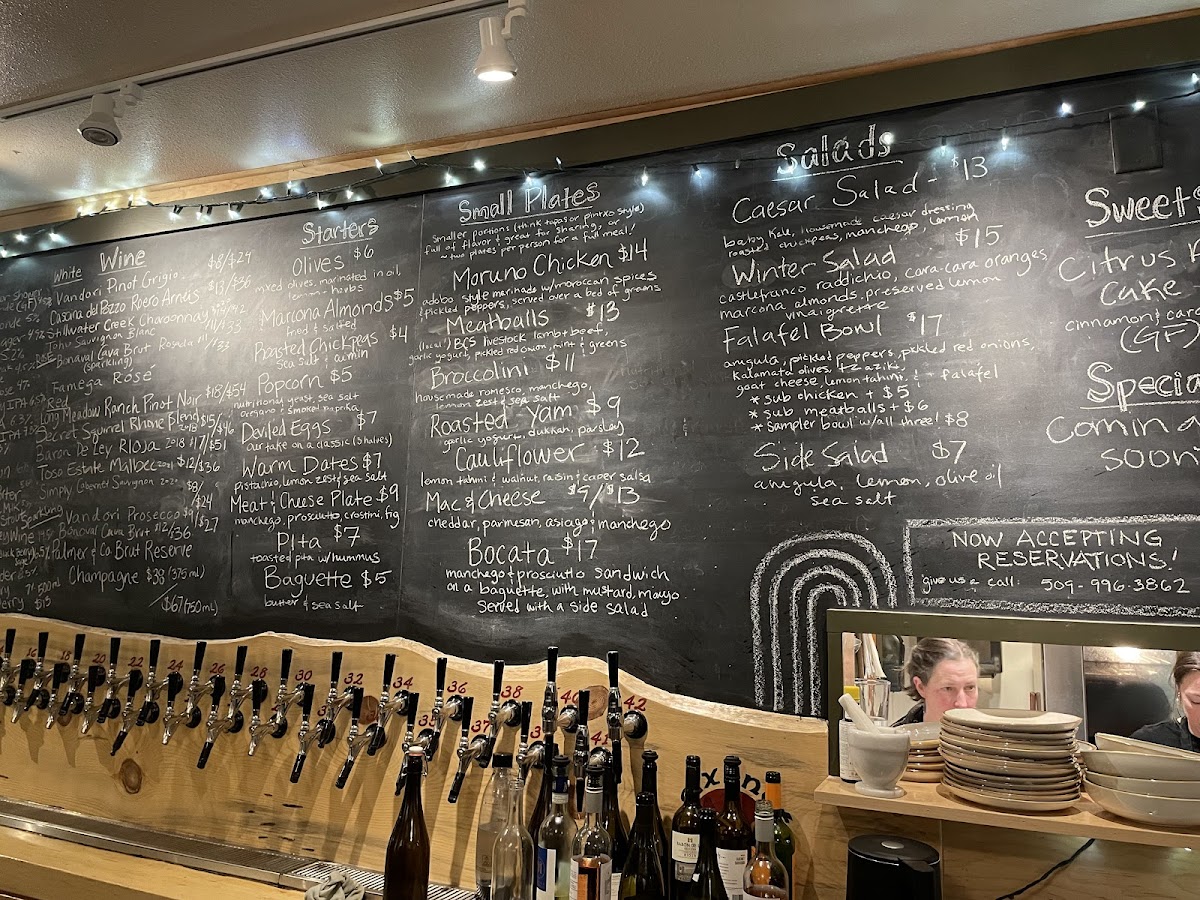 Wine
White
Vandori Pinot Grigio $8/$24
Casina del Pozzo Roero Arneis $13/$36
Stillwater Creek Chardonnay
Sauvignon Blanc
Bonaval Cava Brut Rosada
(sparkling)
Famega Rosé
Red
Long Meadow Ranch Pinot Noir $18/$54
Secret Squirrel Rhone Blend $15/$46
Baron De Ley Rioja 2018 $17/$51
Toso Estate Malbec $12/$36
Simply Cabernet Sauvignon $8/
$24
Sparkling
Vandori Prosecco $9/$27
Bonaval Cava Brut $12/$36
Palmer & Co Brut Reserve
Champagne $38 (375 ml)
/$67 (750 ml)
Starters
Olives $6
mixed olives, marinated in oil,
lemon & herbs
Marcona Almonds $5
fried & salted
Roasted Chickpeas $4
sea salt & cumin
Popcorn $5
nutritional yeast, sea salt
oregano & smoked paprika
Deviled Eggs $7
our take on a classic (3 halves)
Warm Dates $7
pistachio, lemon zest & sea salt
Meat & Cheese Plate $9
manchego, prosciutto, crostini, fig
Pita $7
toasted pita w/hummus
Baguette $5
butter & sea salt
Small Plates
smaller portions (think tapas or pintxo style)
full of flavor & great for sharing, or
~ two plates per person for a full meal!
Moruno Chicken $14
adobo style marinade w/moroccan spices
& pickled peppers, served over a bed of greens
Meatballs $13
(local) BCS livestock lamb & beef,
garlic yogurt, pickled red onion, mint & greens
Broccolini $11
housemade romesco, manchego,
lemon zest & sea salt
Roasted Yam $9
garlic yogurt, dukkah, parsley
Cauliflower $12
lemon tahini & walnut, raisin & caper salsa
Mac & Cheese $9/$13
cheddar, parmesan, asiago & manchego
Bocata $17
manchego & prosciutto sandwich
on a baguette, with mustard, mayo
served with a side salad
Salads
Caesar Salad - $13
baby kale, housemade caesar dressing
roasted chickpeas, manchego, lemon
Winter Salad $15
castlefranco raddichio, cara-cara oranges
marcona almonds, preserved lemon
vinaigrette
Falafel Bowl $17
arugula, pickled peppers, pickled red onions,
kalamata olives, tzaziki,
goat cheese, lemon tahini, & falafel
* sub chicken + $5
* sub meatballs + $6
* Sampler bowl w/all three! $8
Side Salad $7
arugula, lemon, olive oil
sea salt
Sweets
Citrus
Cake
cinnamon &
(GF)
Specia
Comin
soon
NOW ACCEPTING
RESERVATIONS!
give us a call: 509-996-3862
16 18 20 22 24 26 28 30 32 34 36 38 40 42
35 37 39 41